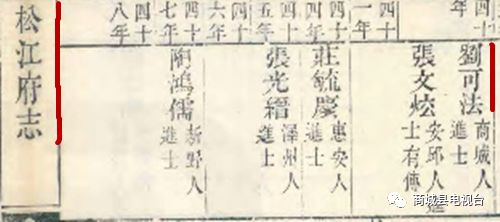 四十
年
四十
一年
四十
四十
四年
四十
五年
四十
六年
四十
七年
四十
八年
劉可法 商城人
進士
張文炫 安邱人進
士有傳
莊毓慶 惠安人
進士
張光縉 澤州人
進士
鴻儒 新野人
進士
松江府志
商城县电视台